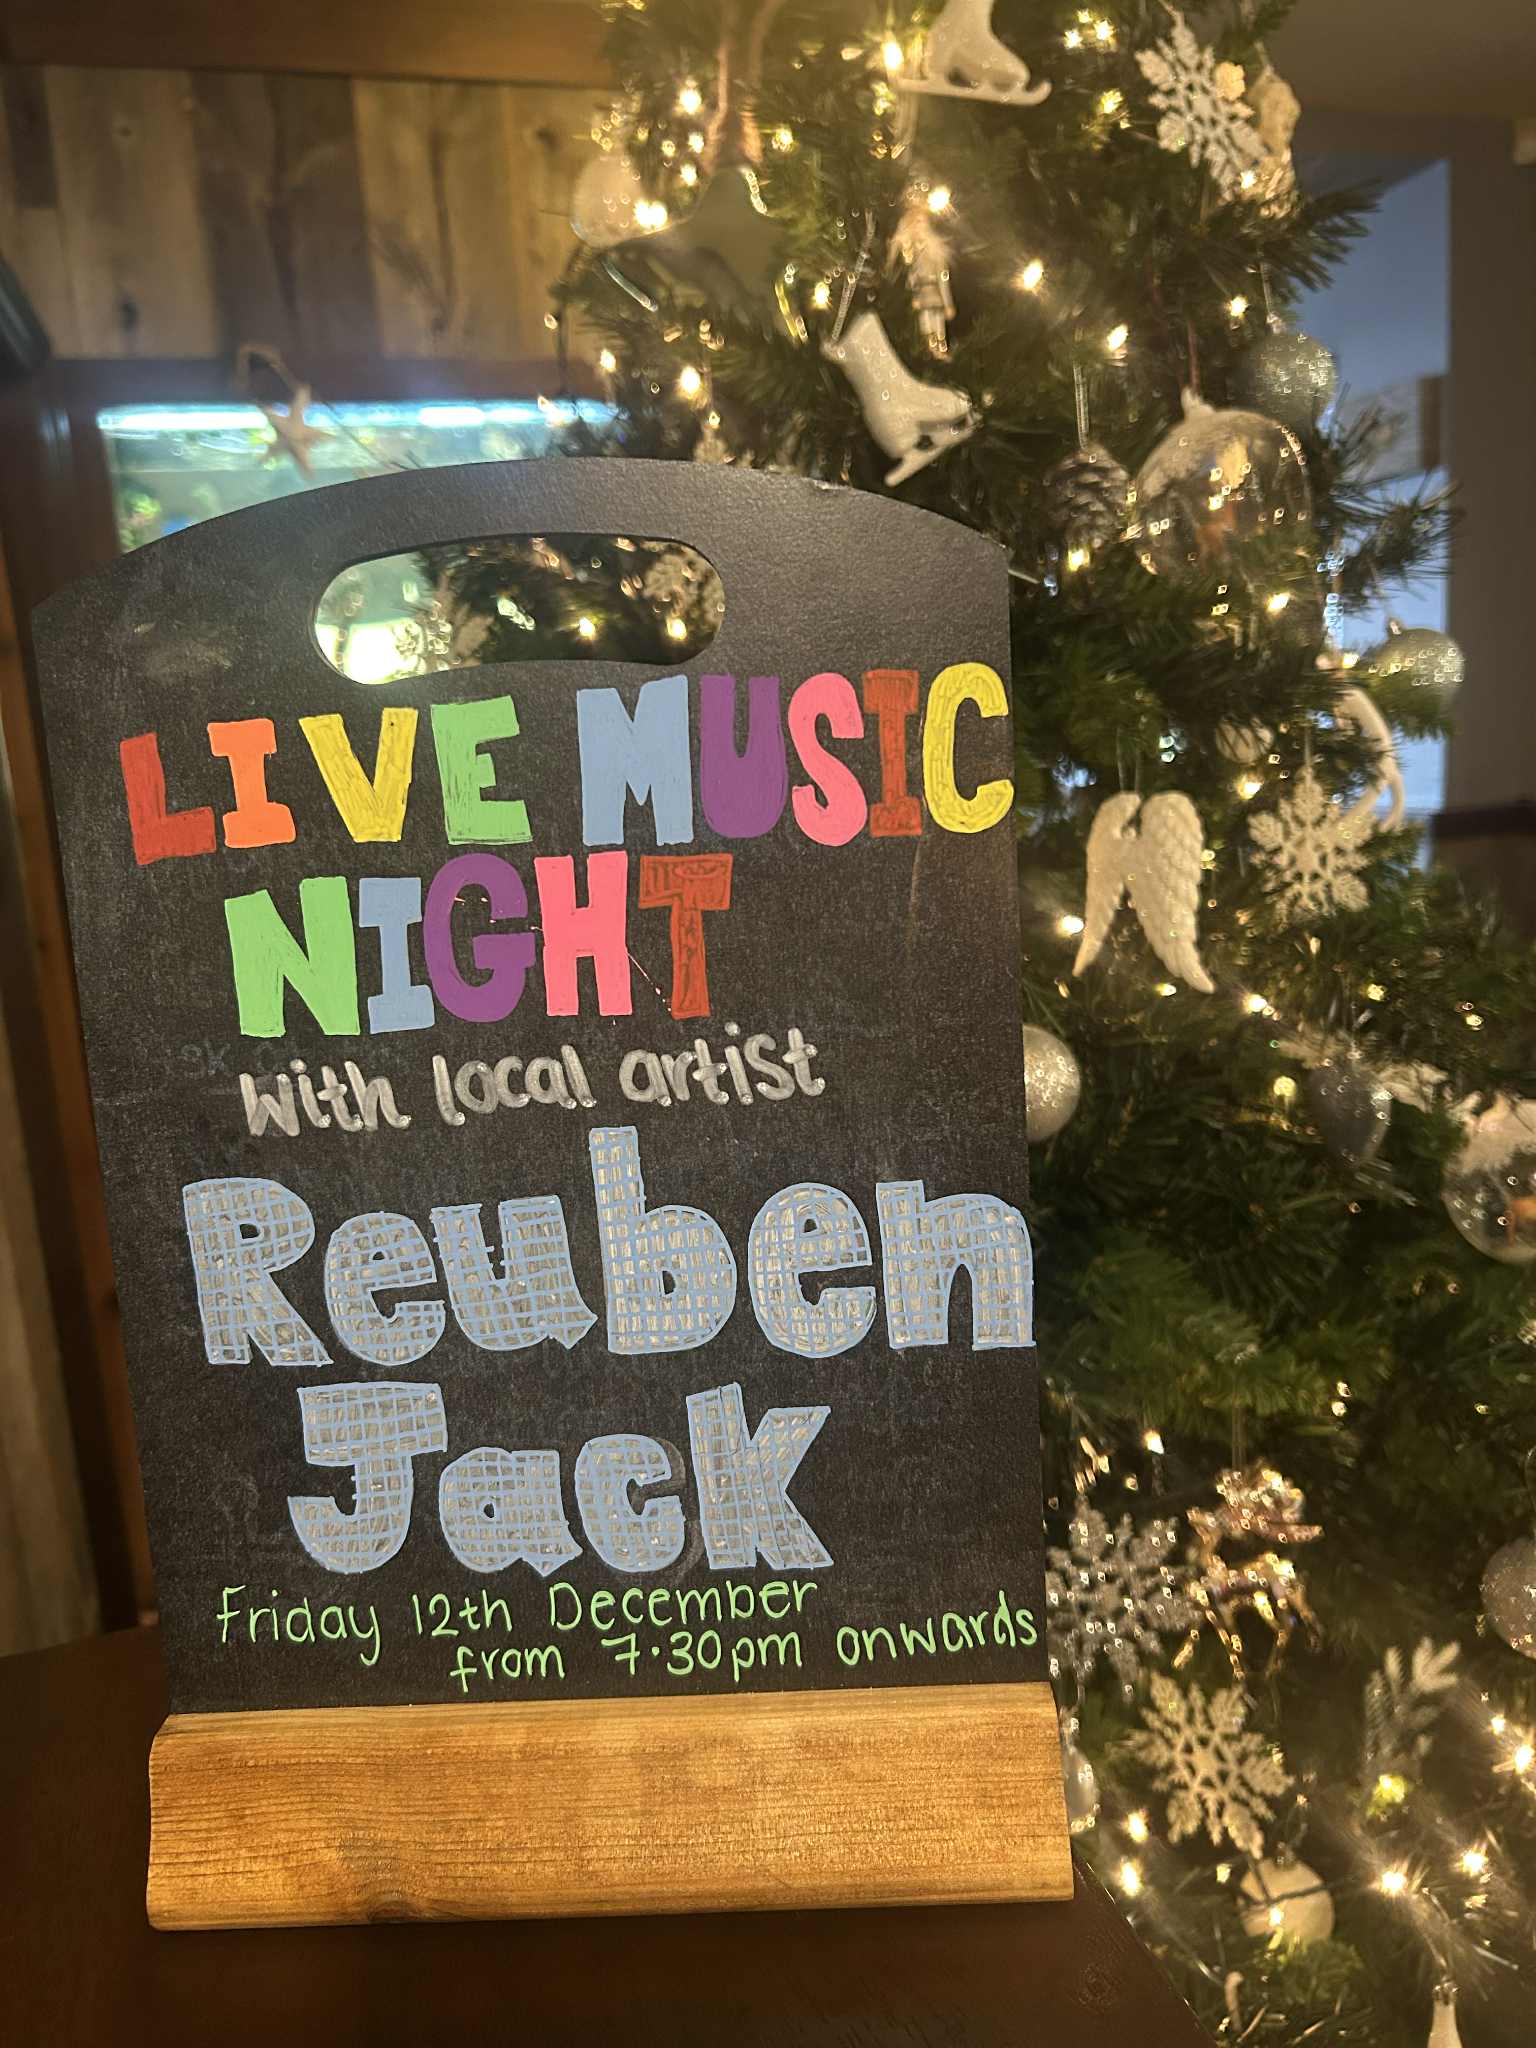 LIVE MUSIC
NIGHT
with local artist
Reuben
Jack
Friday 12th December
from 7.30pm onwards